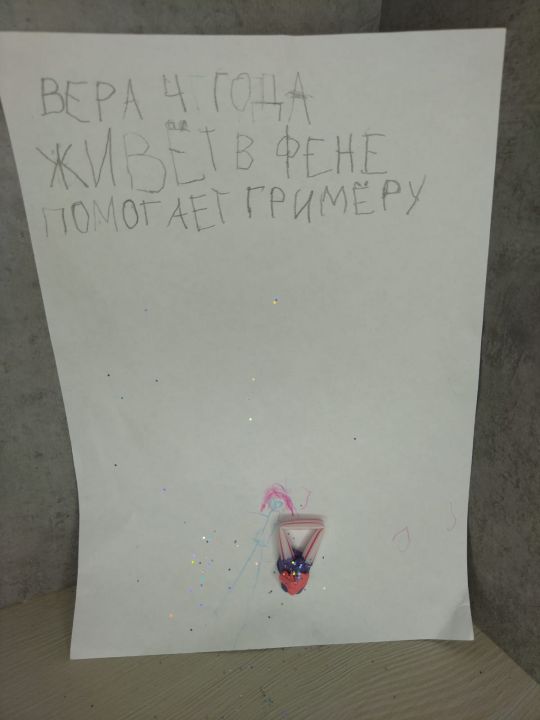 ВЕРА 4 ГОДА
ЖИВЁТ В ФЕНЕ
ПОМОГАЕТ ГРИМЁРУ